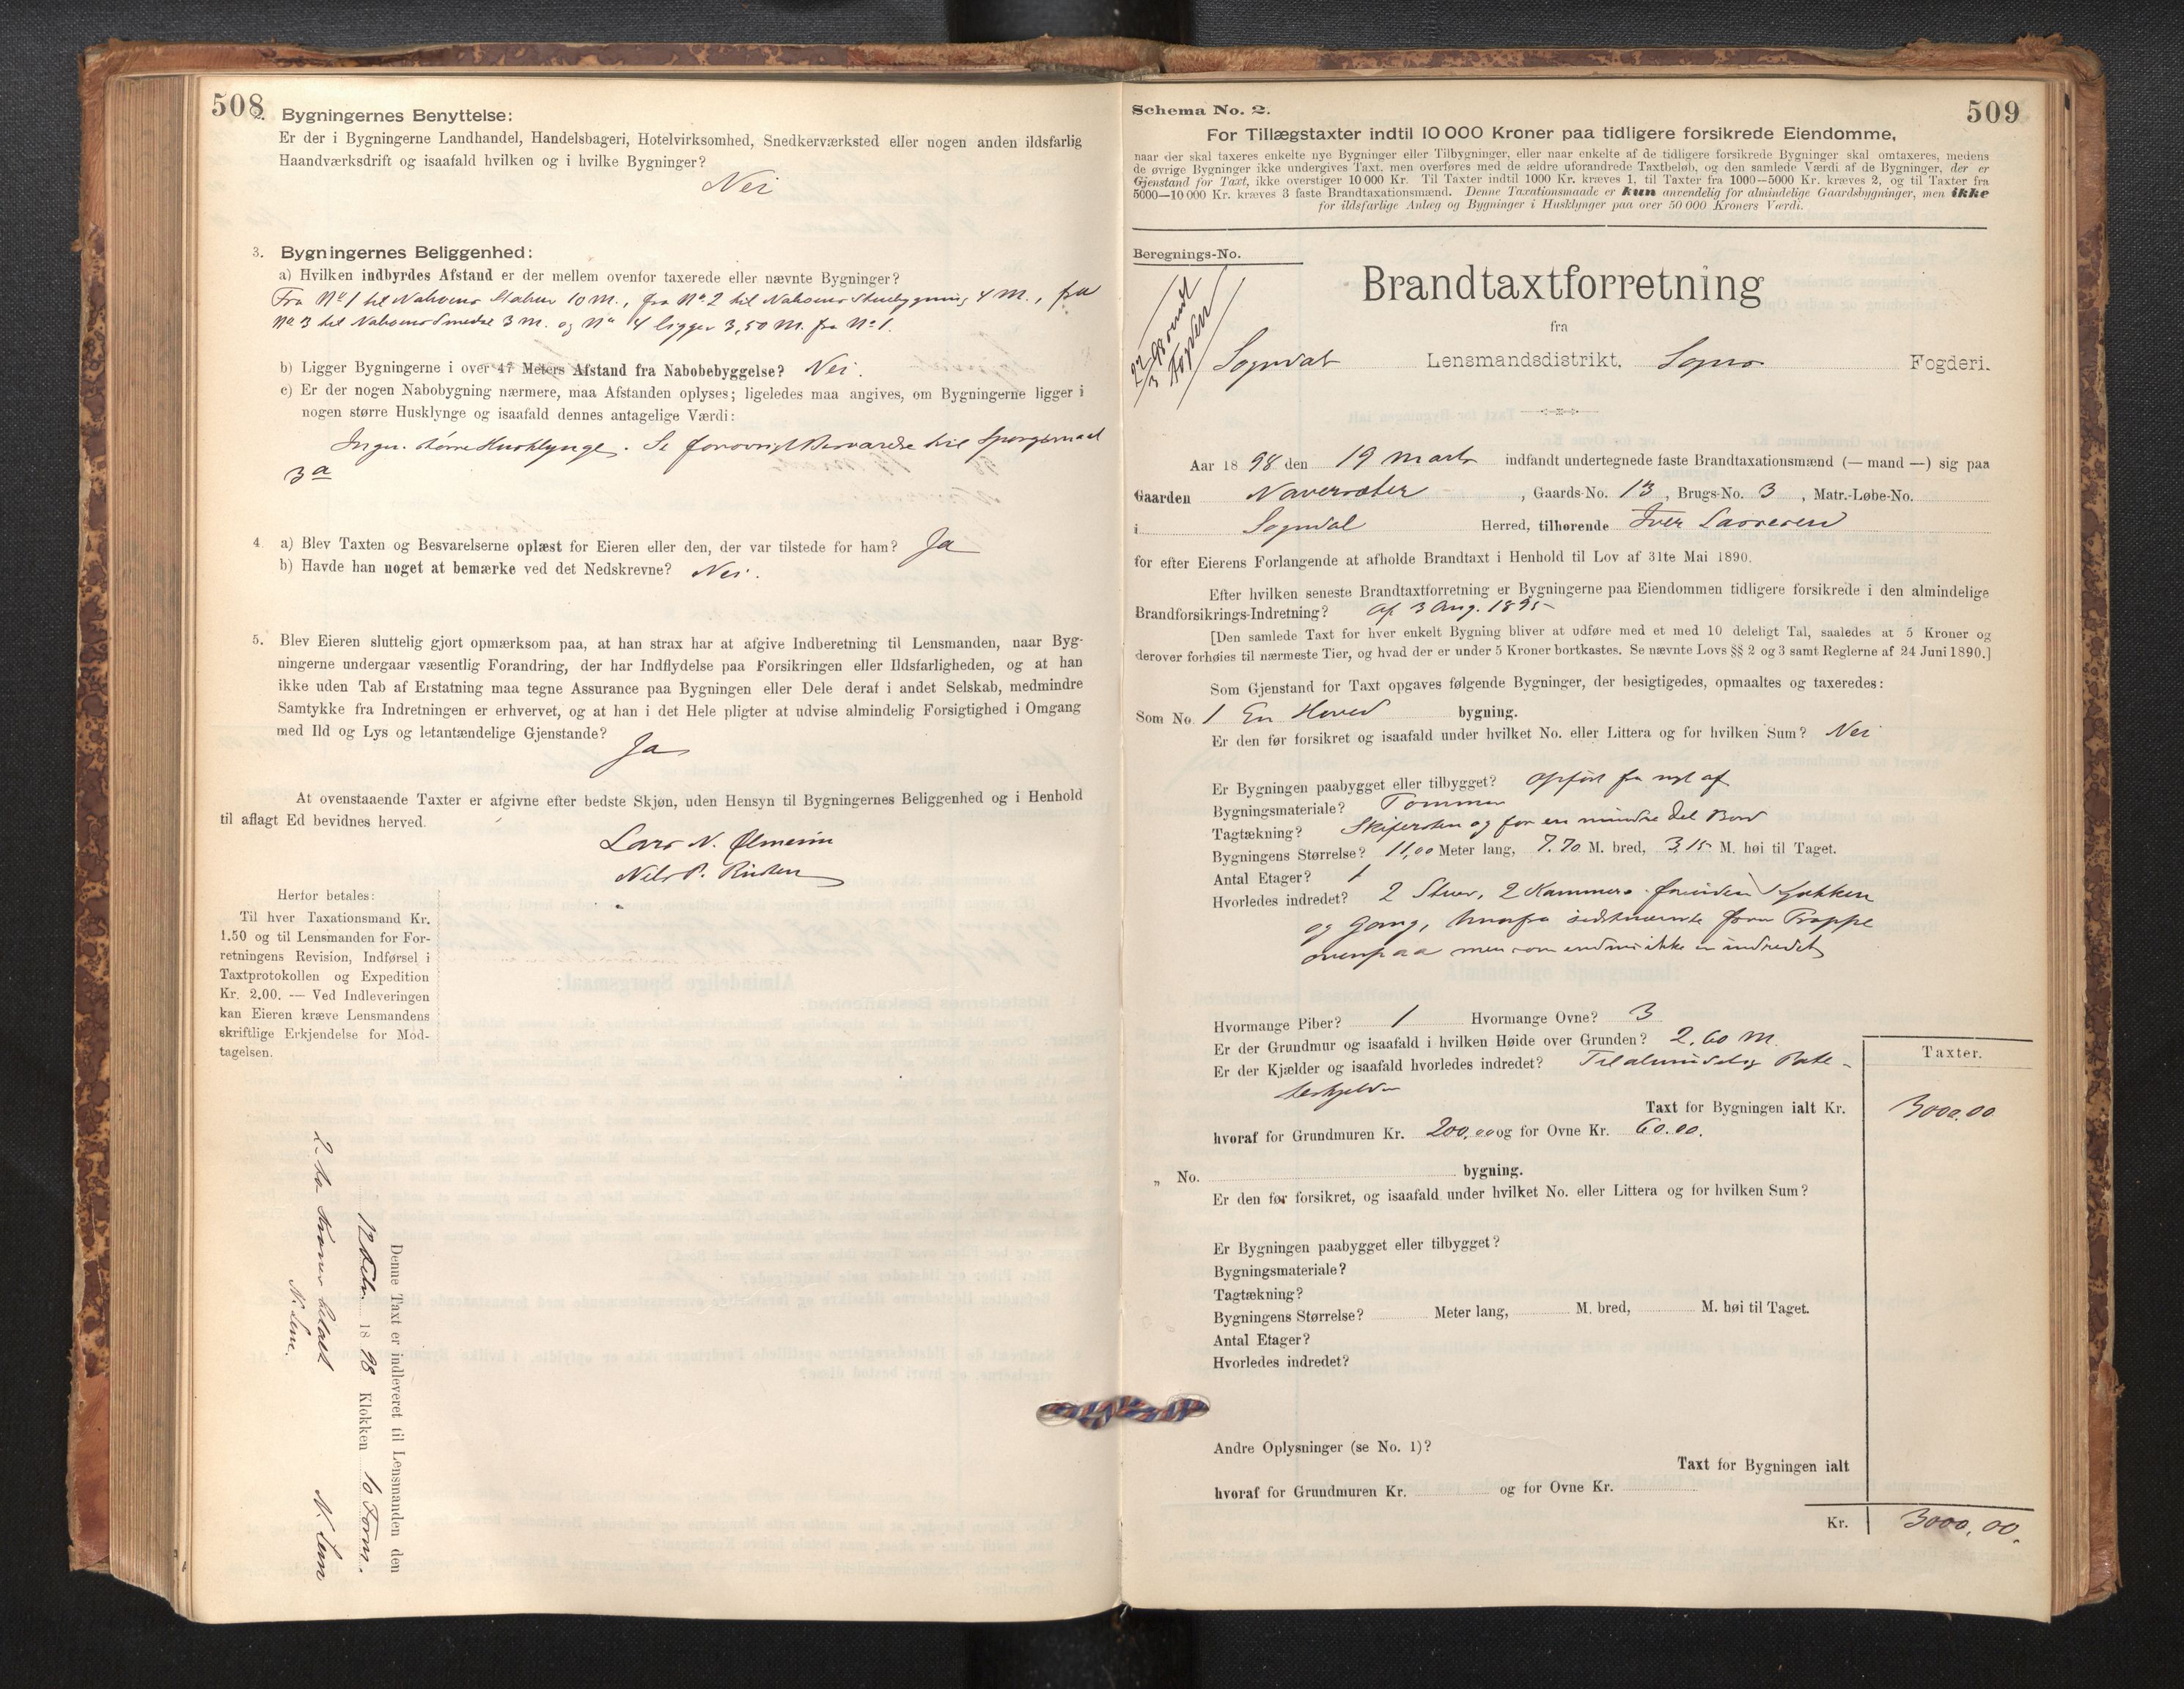 508
2. Bygningernes Benyttelse:
Er der i Bygningerne Landhandel, Handelsbageri, Hotelvirksomhed, Snedkerværksted eller nogen anden ildsfarlig
Haandværksdrift og isaafald hvilken og i hvilke Bygninger?
Nei
3. Bygningernes Beliggenhed:
a) Hvilken indbyrdes Afstand er der mellem ovenfor taxerede eller nævnte Bygninger?
Fra No 1 til Naboens Stabur 10 M., fra No 2 til Naboens Stuebygning 4 M., fra
No 3 til Naboens Smedie 3 M. og No 4 ligger 3,50 M. fra No 1.
b) Ligger Bygningerne i over 47 Meters Afstand fra Nabobebyggelse? Nei.
c) Er der nogen Nabobygning nærmere, maa Afstanden oplyses; ligeledes maa angives, om Bygningerne ligger i
nogen større Husklynge og isaafald dennes antagelige Værdi:
Ingen større Husklynge. Se forøvrigt Besvarelse til Spørgsmaal
3 a
4. a) Blev Taxten og Besvarelserne oplæst for Eieren eller den, der var tilstede for ham? Ja
b) Havde han noget at bemærke ved det Nedskrevne? Nei.
5. Blev Eieren sluttelig gjort opmærksom paa, at han strax har at afgive Indberetning til Lensmanden, naar Byg-
ningerne undergaar væsentlig Forandring, der har Indflydelse paa Forsikringen eller Ildsfarligheden, og at han
ikke uden Tab af Erstatning maa tegne Assurance paa Bygningen eller Dele deraf i andet Selskab, medmindre
Samtykke fra Indretningen er erhvervet, og at han i det Hele pligter at udvise almindelig Forsigtighed i Omgang
med Ild og Lys og letantændelige Gjenstande?
Ja
At ovenstaaende Taxter er afgivne efter bedste Skjøn, uden Hensyn til Bygningernes Beliggenhed og i Henhold
til aflagt Ed bevidnes herved.
Lars N.
Nels P.
Herfor betales:
Til hver Taxationsmand Kr.
1.50 og til Lensmanden for For-
retningens Revision, Indførsel i
Taxtprotokollen og Expedition
Kr. 2.00. — Ved Indleveringen
kan Eieren kræve Lensmandens
skriftlige Erkjendelse for Mod-
tagelsen.
Denne Taxt er indleveret til Lensmanden den
18 98 Klokken 10 Form.
2 to Kroner betalt
N. Lem
509
Schema No. 2.
For Tillægstaxter indtil 10 000 Kroner paa tidligere forsikrede Eiendomme,
naar der skal taxeres enkelte nye Bygninger eller Tilbygninger, eller naar enkelte af de tidligere forsikrede Bygninger skal omtaxeres, medens
de øvrige Bygninger ikke undergives Taxt, men overføres med de ældre uforandrede Taxtbeløb, og den samlede Værdi af de Bygninger, der er
Gjenstand for Taxt, ikke overstiger 10 000 Kr. Til Taxter indtil 1000 Kr. kræves 1, til Taxter fra 1000—5000 Kr. kræves 2, og til Taxter fra
5000—10 000 Kr. kræves 3 faste Brandtaxationsmænd. Denne Taxationsmaade er kun anvendelig for almindelige Gaardsbygninger, men ikke
for ildsfarlige Anlæg og Bygninger i Husklynger paa over 50 000 Kroners Værdi.
Beregnings-No.
22/3 98 sendt
Fogden
Brandtaxtforretning
fra
Sogndal Lensmandsdistrikt, Sogns Fogderi.
Aar 18 98 den 19 Marts indfandt undertegnede faste Brandtaxationsmænd (— mand —) sig paa
Gaarden Naversæter, Gaards-No. 13, Brugs-No. 3, Matr.-Løbe-No.
i Sogndal Herred, tilhørende Iver Lassesen
for efter Eierens Forlangende at afholde Brandtaxt i Henhold til Lov af 31te Mai 1890.
Efter hvilken seneste Brandtaxtforretning er Bygningerne paa Eiendommen tidligere forsikrede i den almindelige
Brandforsikrings-Indretning? af 3 Aug. 1895
[Den samlede Taxt for hver enkelt Bygning bliver at udføre med et med 10 deleligt Tal, saaledes at 5 Kroner og
derover forhøies til nærmeste Tier, og hvad der er under 5 Kroner bortkastes. Se nævnte Lovs §§ 2 og 3 samt Reglerne af 24 Juni 1890.]
Som Gjenstand for Taxt opgaves følgende Bygninger, der besigtigedes, opmaaltes og taxeredes:
Som No. 1 En Hoved bygning.
Er den før forsikret og isaafald under hvilket No. eller Littera og for hvilken Sum? Nei
Er Bygningen paabygget eller tilbygget? Opført fra nyt af
Bygningsmateriale? Tømmer
Tagtækning? Skifersten og for en mindre Del Bord
Bygningens Størrelse? 11,00 Meter lang, 7.70 M. bred, 3,15 M. høi til Taget.
Antal Etager? 1
Hvorledes indredet? 2 Stuer, 2 Kammers foruden Kjøkken
og Gang, hvorfra sidstnævnte fører Trappe
ovenpaa men som endnu ikke er indredet
Hvormange Piber? 1 Hvormange Ovne? 3
Er der Grundmur og isaafald i hvilken Høide over Grunden? 2,60 M.
Er der Kjælder og isaafald hvorledes indredet? Til almindelig Pote-
teskjelder
Taxter.
Taxt for Bygningen ialt Kr. 3000,00
hvoraf for Grundmuren Kr. 200,00 og for Ovne Kr. 60.00.
„ No. bygning.
Er den før forsikret, og isaafald under hvilket No. eller Littera og for hvilken Sum?
Er Bygningen paabygget eller tilbygget?
Bygningsmateriale?
Tagtækning?
Bygningens Størrelse? Meter lang, M. bred, M. høi til Taget.
Antal Etager?
Hvorledes indredet?
Andre Oplysninger (se No. 1)?
Taxt for Bygningen ialt
hvoraf for Grundmuren Kr. og for Ovne Kr.
Kr. 3000,00.